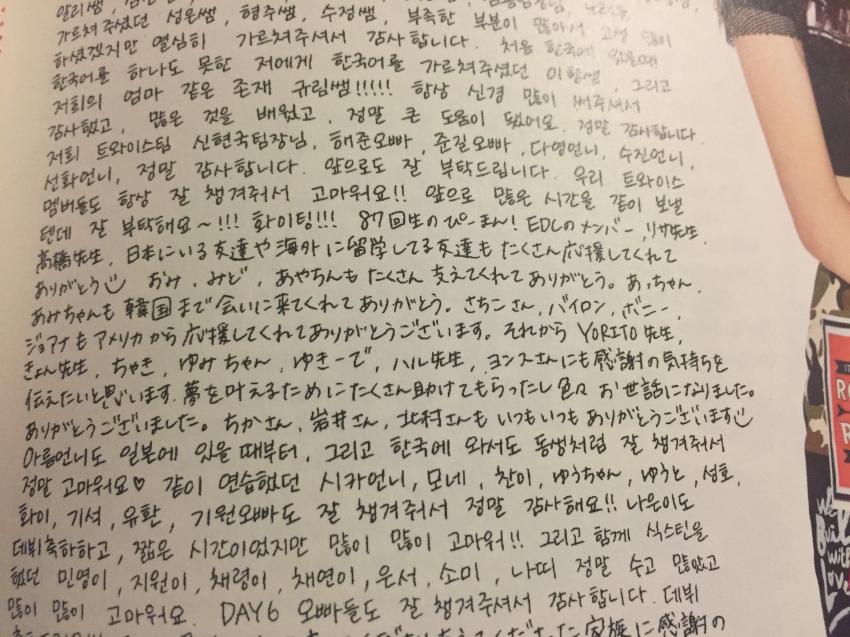 가르쳐주셨던 성은쌤, 형주쌤, 수정쌤, 부족한 부분이 많아서 고생 많이
하셨겠지만 열심히 가르쳐주셔서 감사합니다. 처음 한국에 있을때
한국어를 하나도 못한 저에게 한국어를 가르쳐주셨던 이향쌤, 그리고
저희의 엄마 같은 존재 규림쌤!!!!! 항상 신경 많이 써주셔서
감사했고, 많은 것을 배웠고, 정말 큰 도움이 됐어요. 정말 감사합니다.
저희 트와이스팀 신현국팀장님, 해준오빠, 준길오빠, 다영언니, 수진언니,
선화언니, 정말 감사합니다. 앞으로도 잘 부탁드립니다. 우리 트와이스
멤버들도 항상 잘 챙겨줘서 고마워요!! 앞으로 많은 시간을 같이 보낼
텐데 잘 부탁해요~!!! 화이팅!!! 87回生のぴーまん! EDLのメンバー, リサ先生,
高橋先生, 日本にいる友達や海外に留学してる友達もたくさん応援してくれて
ありがとう おみ, みど, あやちんもたくさん支えてくれてありがとう。あっちゃん,
あみちゃんも韓国まで会いに来てくれてありがとう。さちこさん, バイロン, ボニー,
ジョアナもアメリカから応援してくれてありがとうございます。それから YORITO先生,
きょん先生, ちゃき, ゆみちゃん, ゆきーで, ハル先生, ヨンスさんにも感謝の気持ちを
伝えたいと思います. 夢を叶えるためにたくさん助けてもらったし色々お世話になりました。
ありがとうございました。ちかさん, 岩井さん, 北村さんもいつもいつもありがとうございます
아름언니도 일본에 있을 때부터, 그리고 한국에 와서도 동생처럼 잘 챙겨줘서
정말 고마워요♡ 같이 연습했던 시카언니, 모네, 찬이, ゆうちゃん, ゆうと, 성호,
화이, 기석, 유환, 기원오빠도 잘 챙겨줘서 정말 감사해요!! 나은이도
데뷔축하하고, 짧은 시간이었지만 많이 많이 고마워!! 그리고 함께 식스틴을
했던 민영이, 지원이, 채령이, 채연이, 은서, 소미, 나띠 정말 수고 많았고
많이 많이 고마워요. DAY6 오빠들도 잘 챙겨주셔서 감사합니다. 데뷔
家族に感謝の